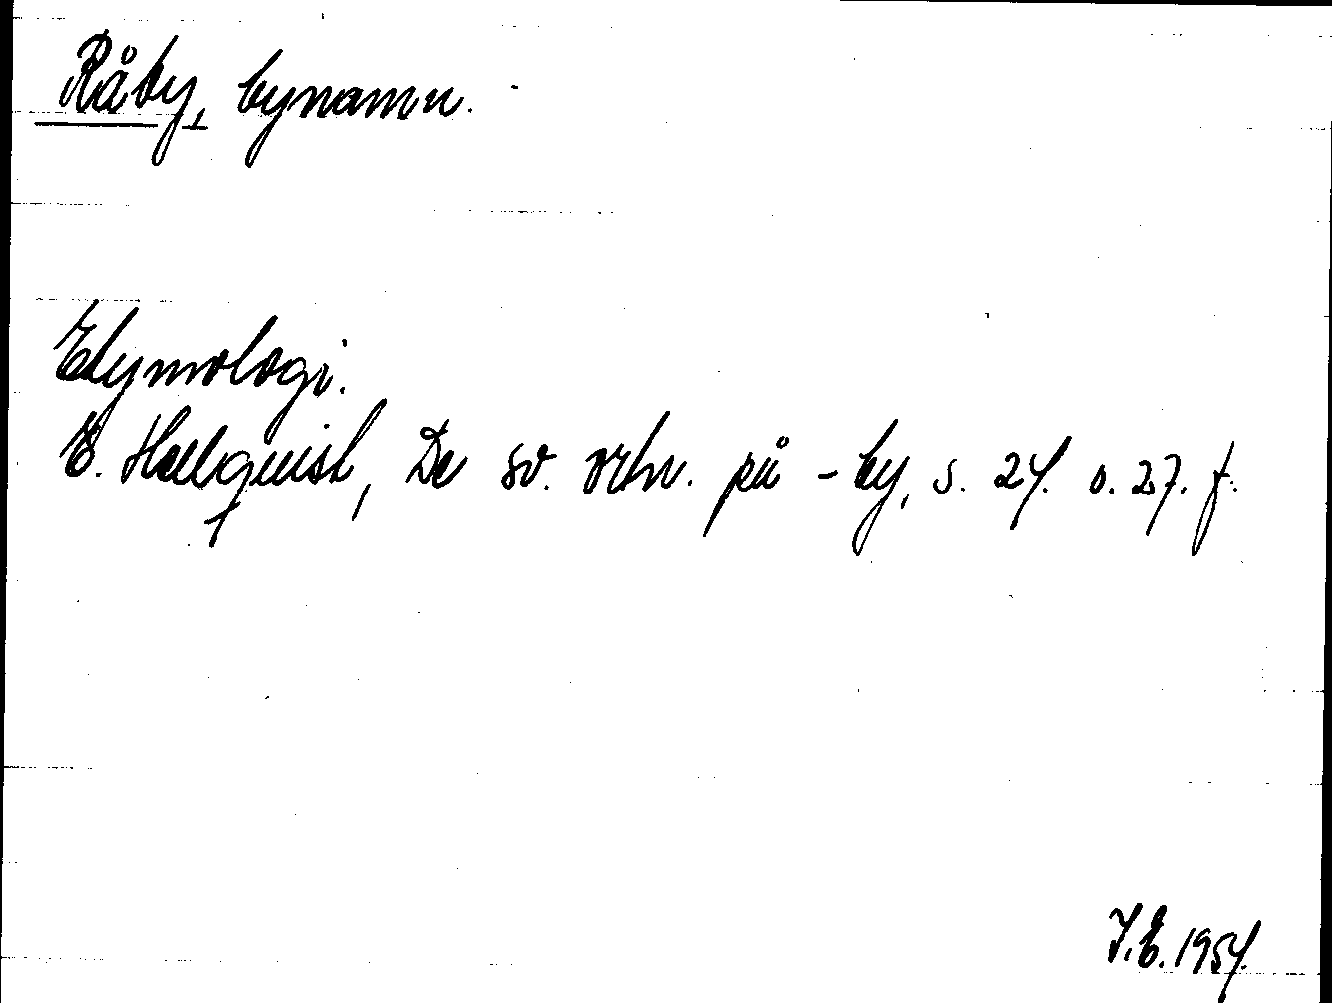 Råby, bynamn.
Etymologi.
E. Hellquist, De sv. ortn. på -by, s. 24. o. 27. f.
J.E. 1954.